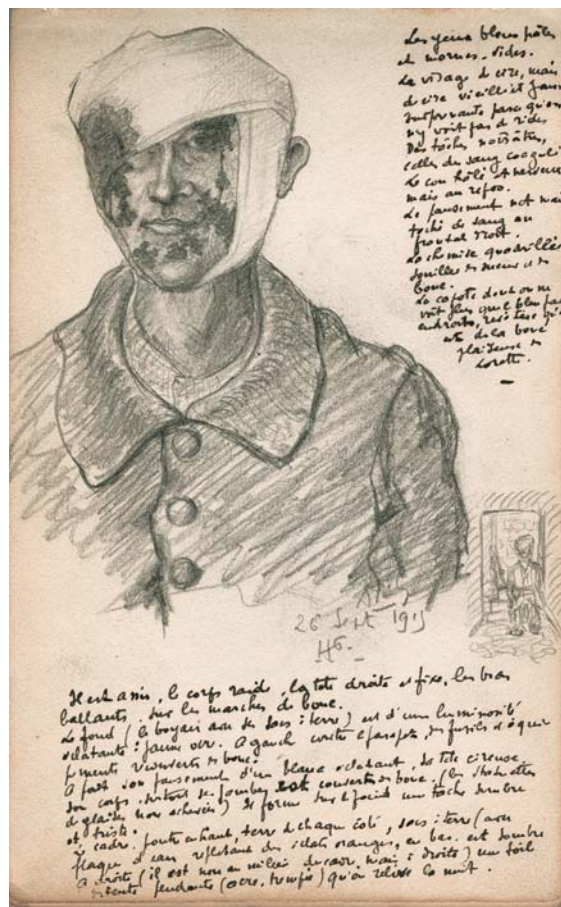 Les yeux bleus pâles
et mornes. vides.
Le visage de cire, mais
de cire vieillie et jaune
parce qu'on
n'y voit pas de rides
Des tâches noirâtres,
celles du sang coagulé
Le cou hâlé et nerveux
mais au repos.
Le pansement
taché de sang au
frontal droit.
La chemise quadrillée
souillée de
boue.
La capote dont on ne
voit plus que le bleu par
endroits,
de la boue
glaiseuse de
Lorette.
26 Sept 1915
HG.
Il est assis, le corps raide, la tête droite et fixe, les bras
ballants, sur les marches de boue.
Le fond (le boyau avec ses sacs à terre) est d'une luminosité
éclatante : jaune ocre. A gauche contre le parapet, des fusils et équi
pements de boue.
A part son pansement d'un blanc éclatant, sa tête cireuse
son corps, surtout ses jambes est couvert de boue. (les
de glaises non achevées) se forme sur le fond une tâche sombre
et triste.
Le cadre. poutre en haut, terre de chaque côté, sacs à terre (avec
flaque d'eau reflétant des éclats oranges, en bas. est sombre
A droite (il est non au milieu du cadre, mais à droite) une toile
de tente pendante (ocre, ) qu'on relève la nuit.